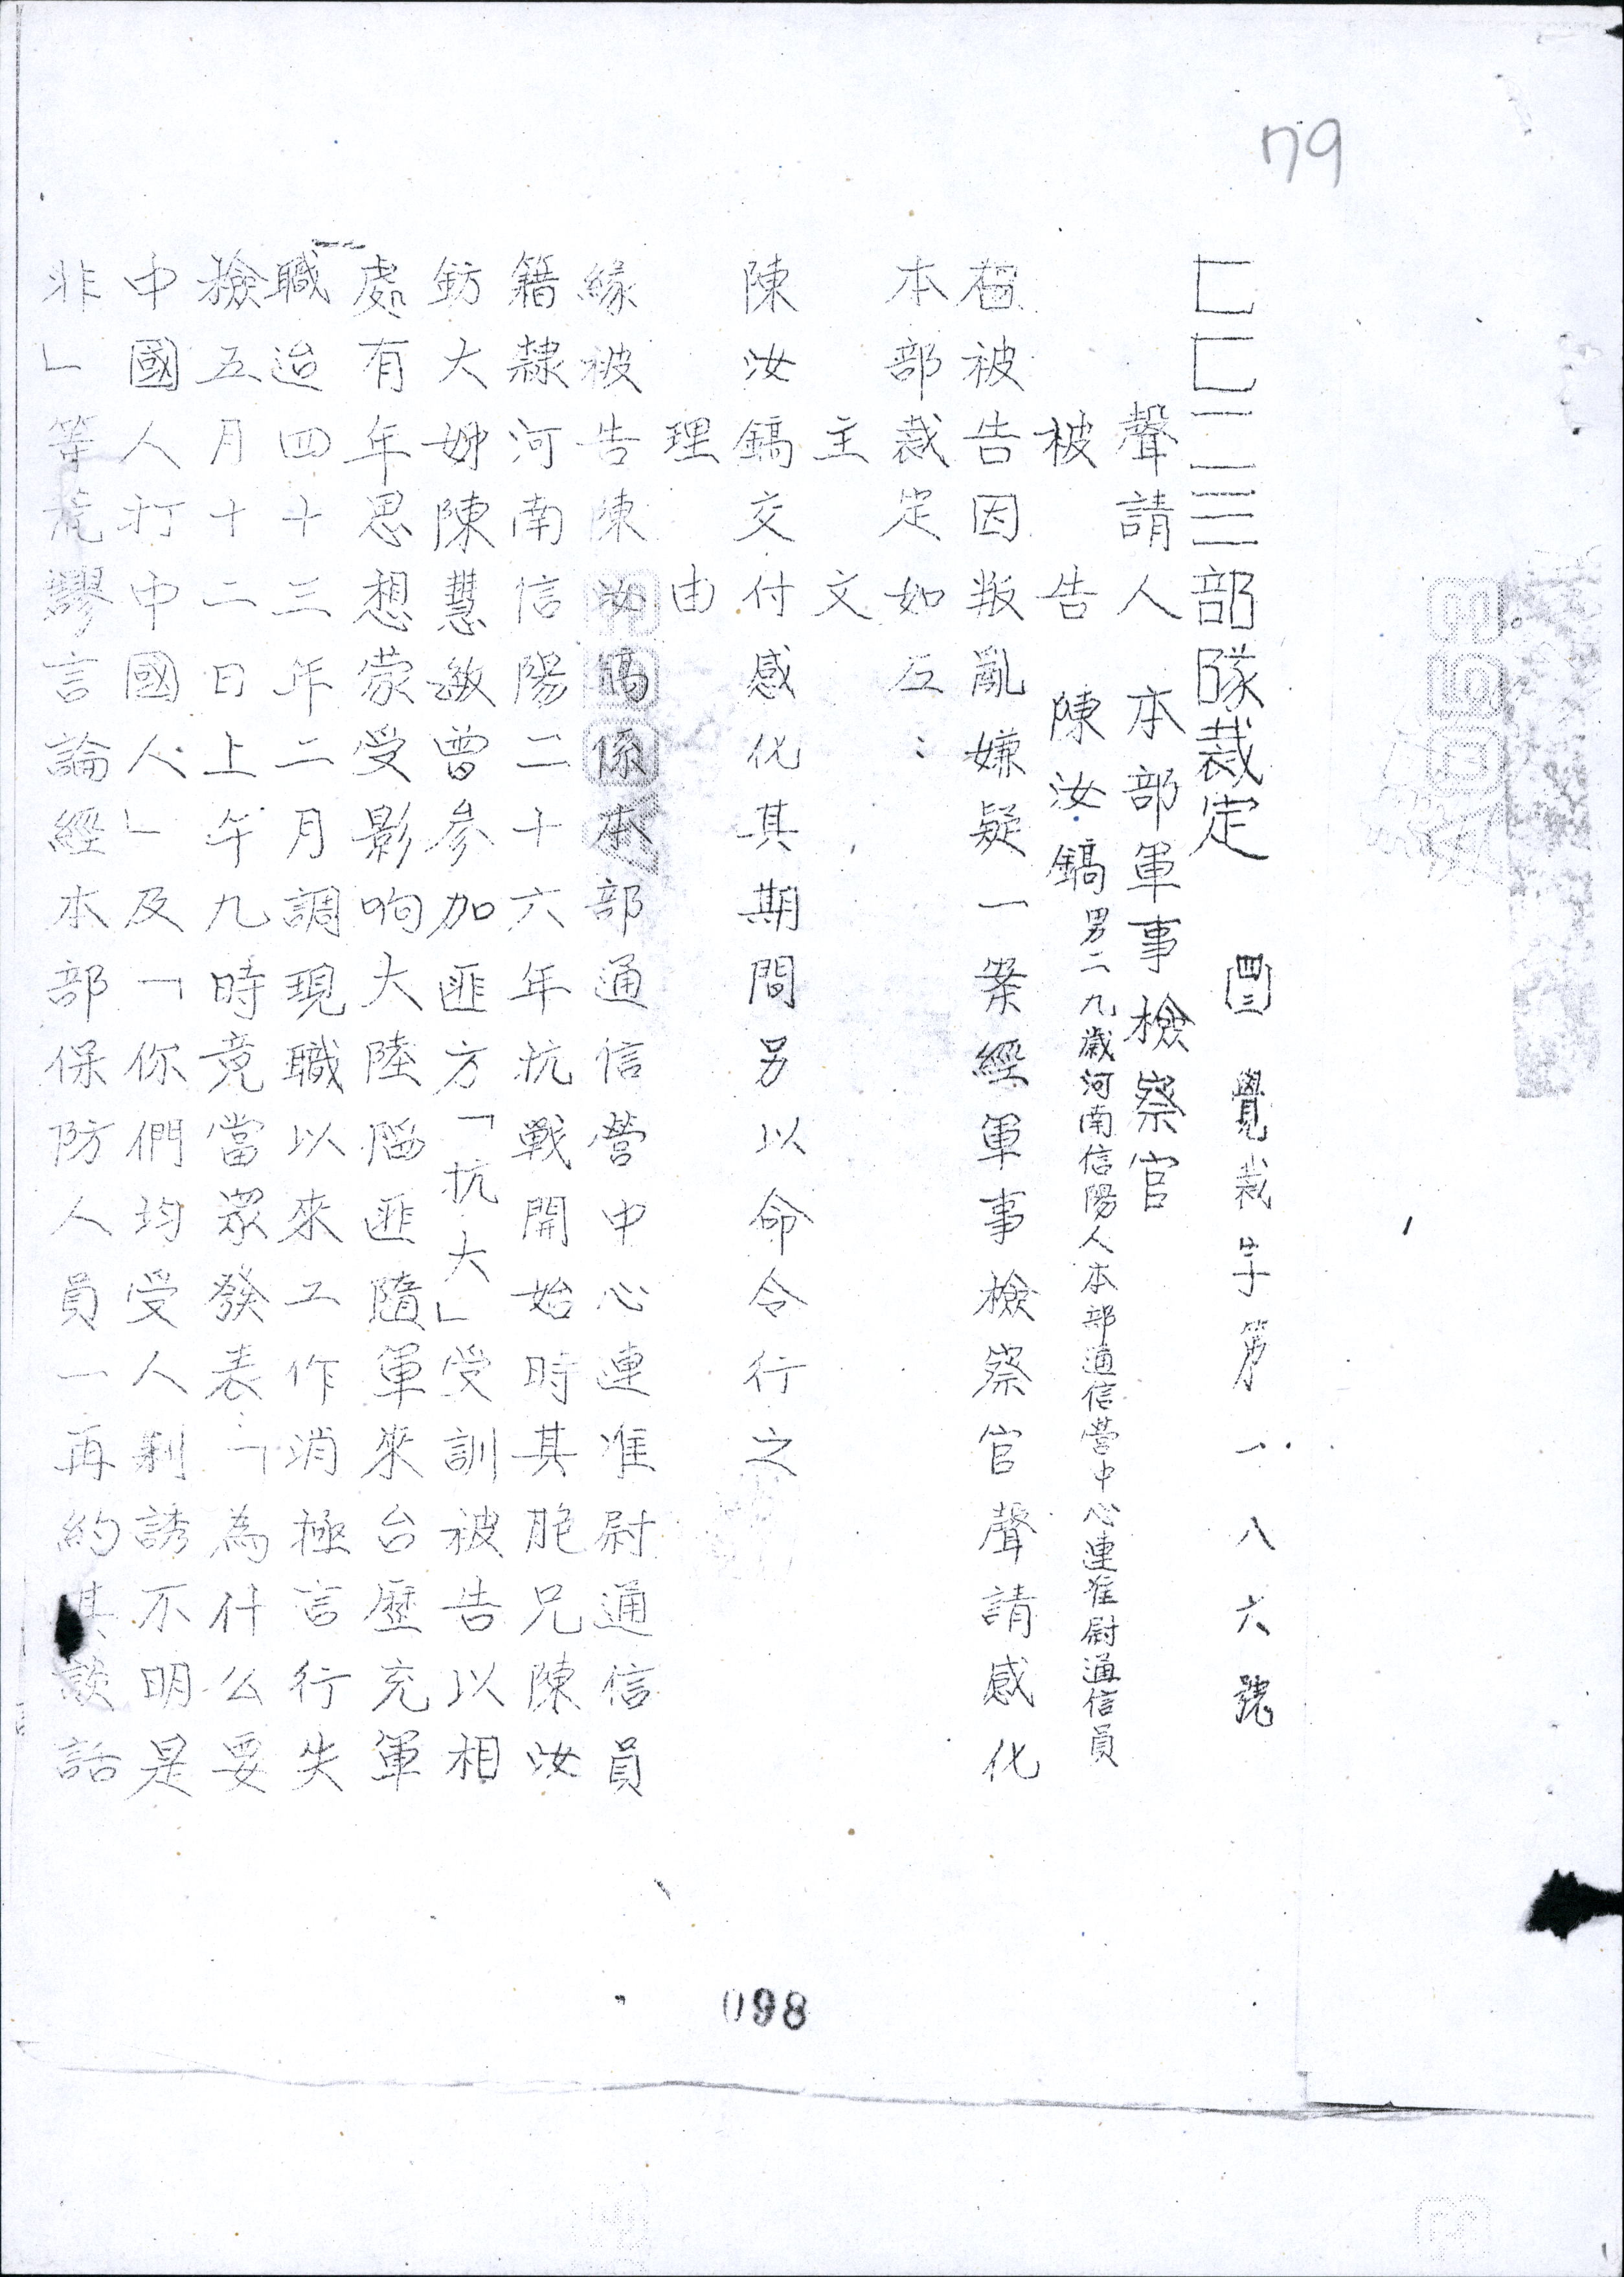 79
匚匚二三三部隊裁定 (四三) 覺裁字第一八六號
聲請人 本部軍事檢察官
被告 陳汝鎬 男二九歲河南信陽人本部通信營中心連准尉通信員
右被告因叛亂嫌疑一案經軍事檢察官聲請感化
本部裁定如左:
主文
陳汝鎬交付感化其期間另以命令行之
理由
緣被告陳汝鎬係本部通信營中心連准尉通信員
籍隸河南信陽二十六年抗戰開始時其胞兄陳汝
鈁大姊陳慧敏曾參加匪方「抗大」受訓被告以相
處有年思想蒙受影响大陸陷匪隨軍來台歷充軍
職迨四十三年二月調現職以來工作消極言行失
檢五月十二日上午九時竟當眾發表:「為什么要
中國人打中國人」及「你們均受人利誘不明是
非」等荒謬言論經本部保防人員一再約其談話
098